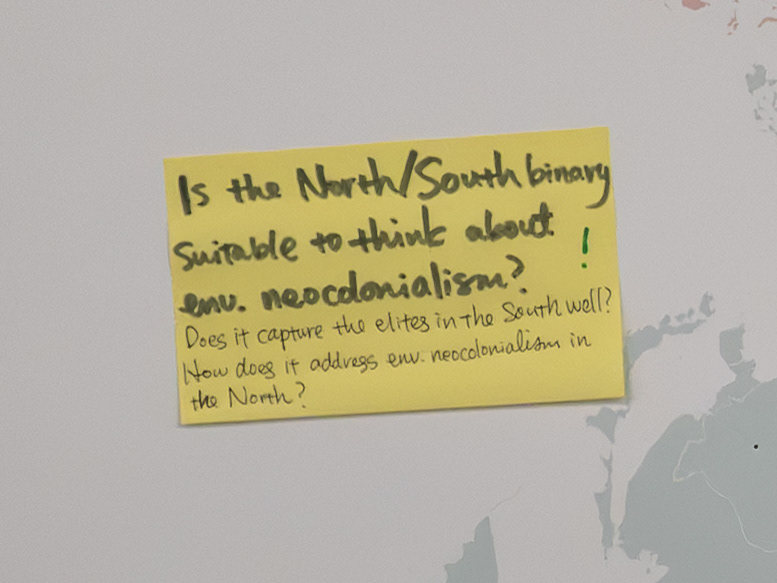 Is the North/South binary
suitable to think about
!
env. neocolonialism?
Does it capture the elites in the South well?
How does it address env. neocolonialism in
the North?